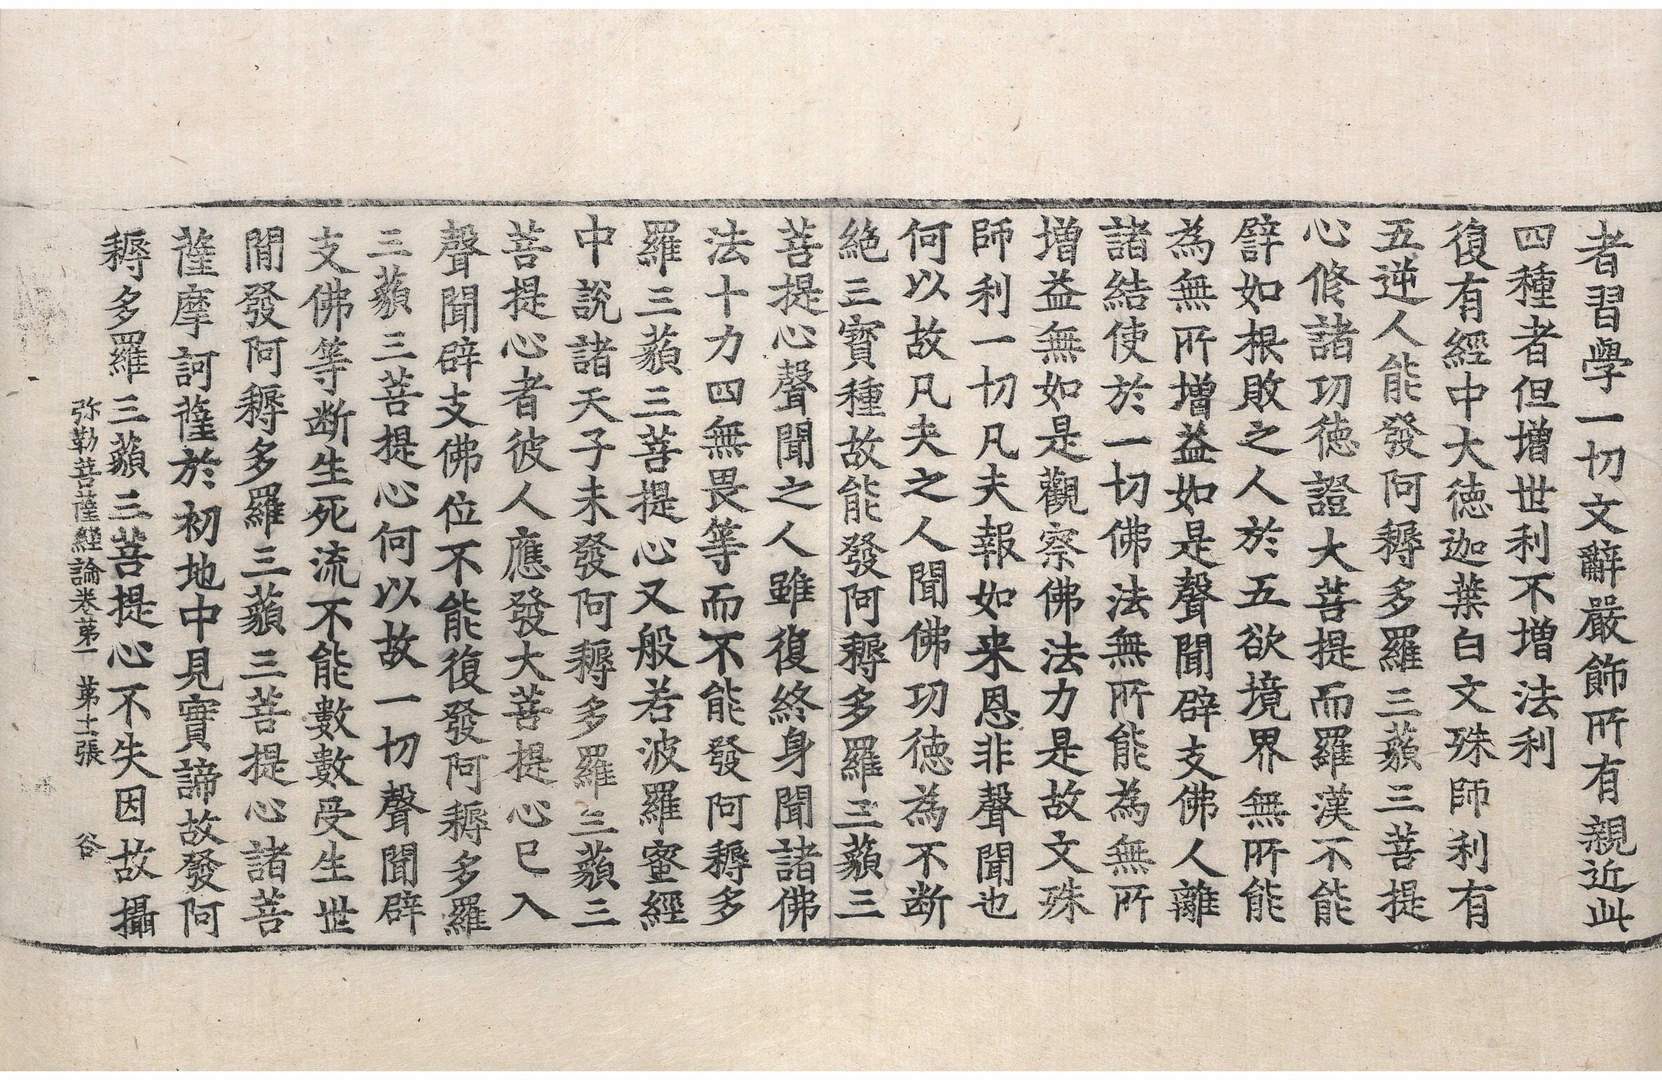 者習學一切文辭嚴飾所有親近此
四種者但增世利不增法利
復有經中大德迦葉白文殊師利有
五逆人能發阿耨多羅三藐三菩提
心修諸功德證大菩提而羅漢不能
譬如根敗之人於五欲境界無所能
為無所增益如是聲聞辟支佛人離
諸結使於一切佛法無所能為無所
增益無如是觀察佛法力是故文殊
師利一切凡夫報如来恩非聲聞也
何以故凡夫之人聞佛功德為不断
絶三寳種故能發阿耨多羅三藐三
菩提心聲聞之人雖復終身聞諸佛
法十力四無畏等而不能發阿耨多
羅三藐三菩提心又般若波羅蜜經
中説諸天子未發阿耨多羅三藐三
菩提心者彼人應發大菩提心已入
聲聞辟支佛位不能復發阿耨多羅
三藐三菩提心何以故一切聲聞辟
支佛等断生死流不能數數受生世
間發阿耨多羅三藐三菩提心諸菩
薩摩訶薩於初地中見實諦故發阿
耨多羅三藐三菩提心不失因故攝
弥勒菩薩經論卷第一 第十二張 谷